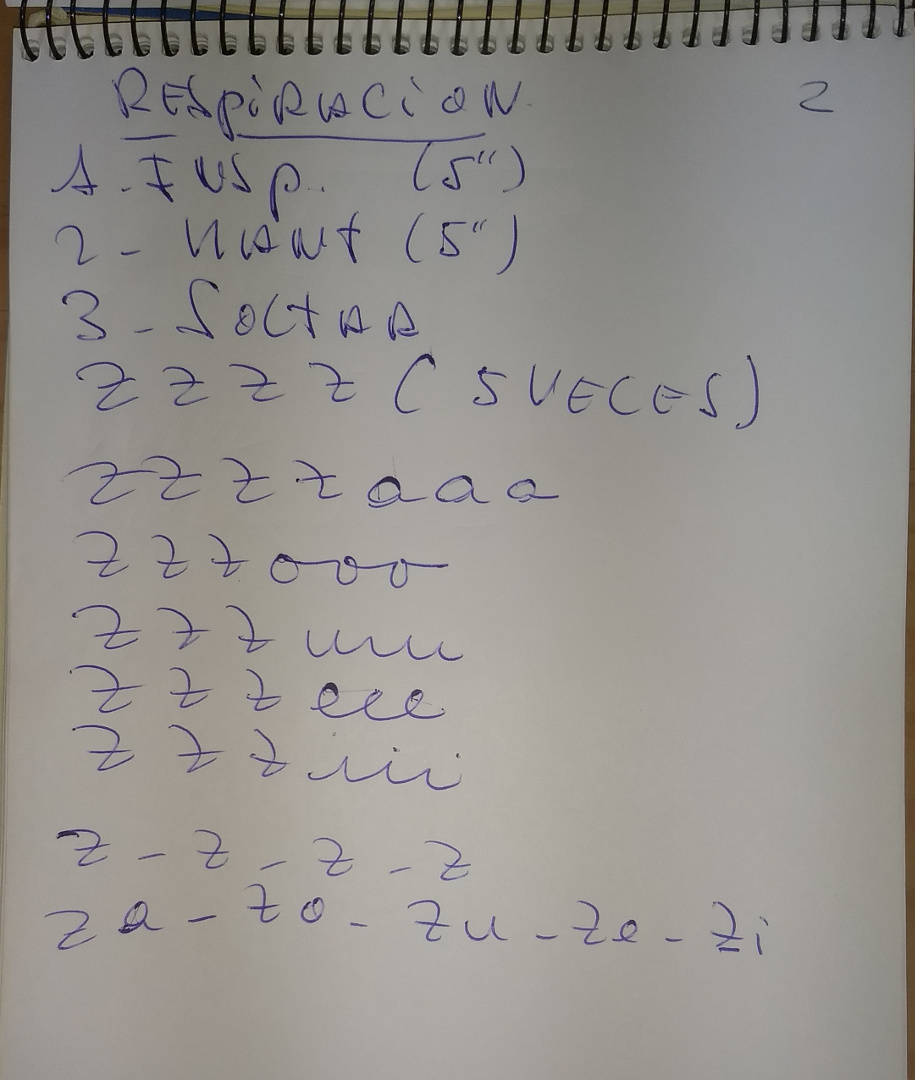 RESPIRACION 2
1. INSP. (5")
2 - MANT (5")
3 - SOLTAR
Z Z Z Z (5 VECES)
Z Z Z Z a a a
Z Z Z o o o
Z Z Z u u u
Z Z Z e e e
Z Z Z i i i
Z - Z - Z - Z
Za - Zo - Zu - Ze - Zi